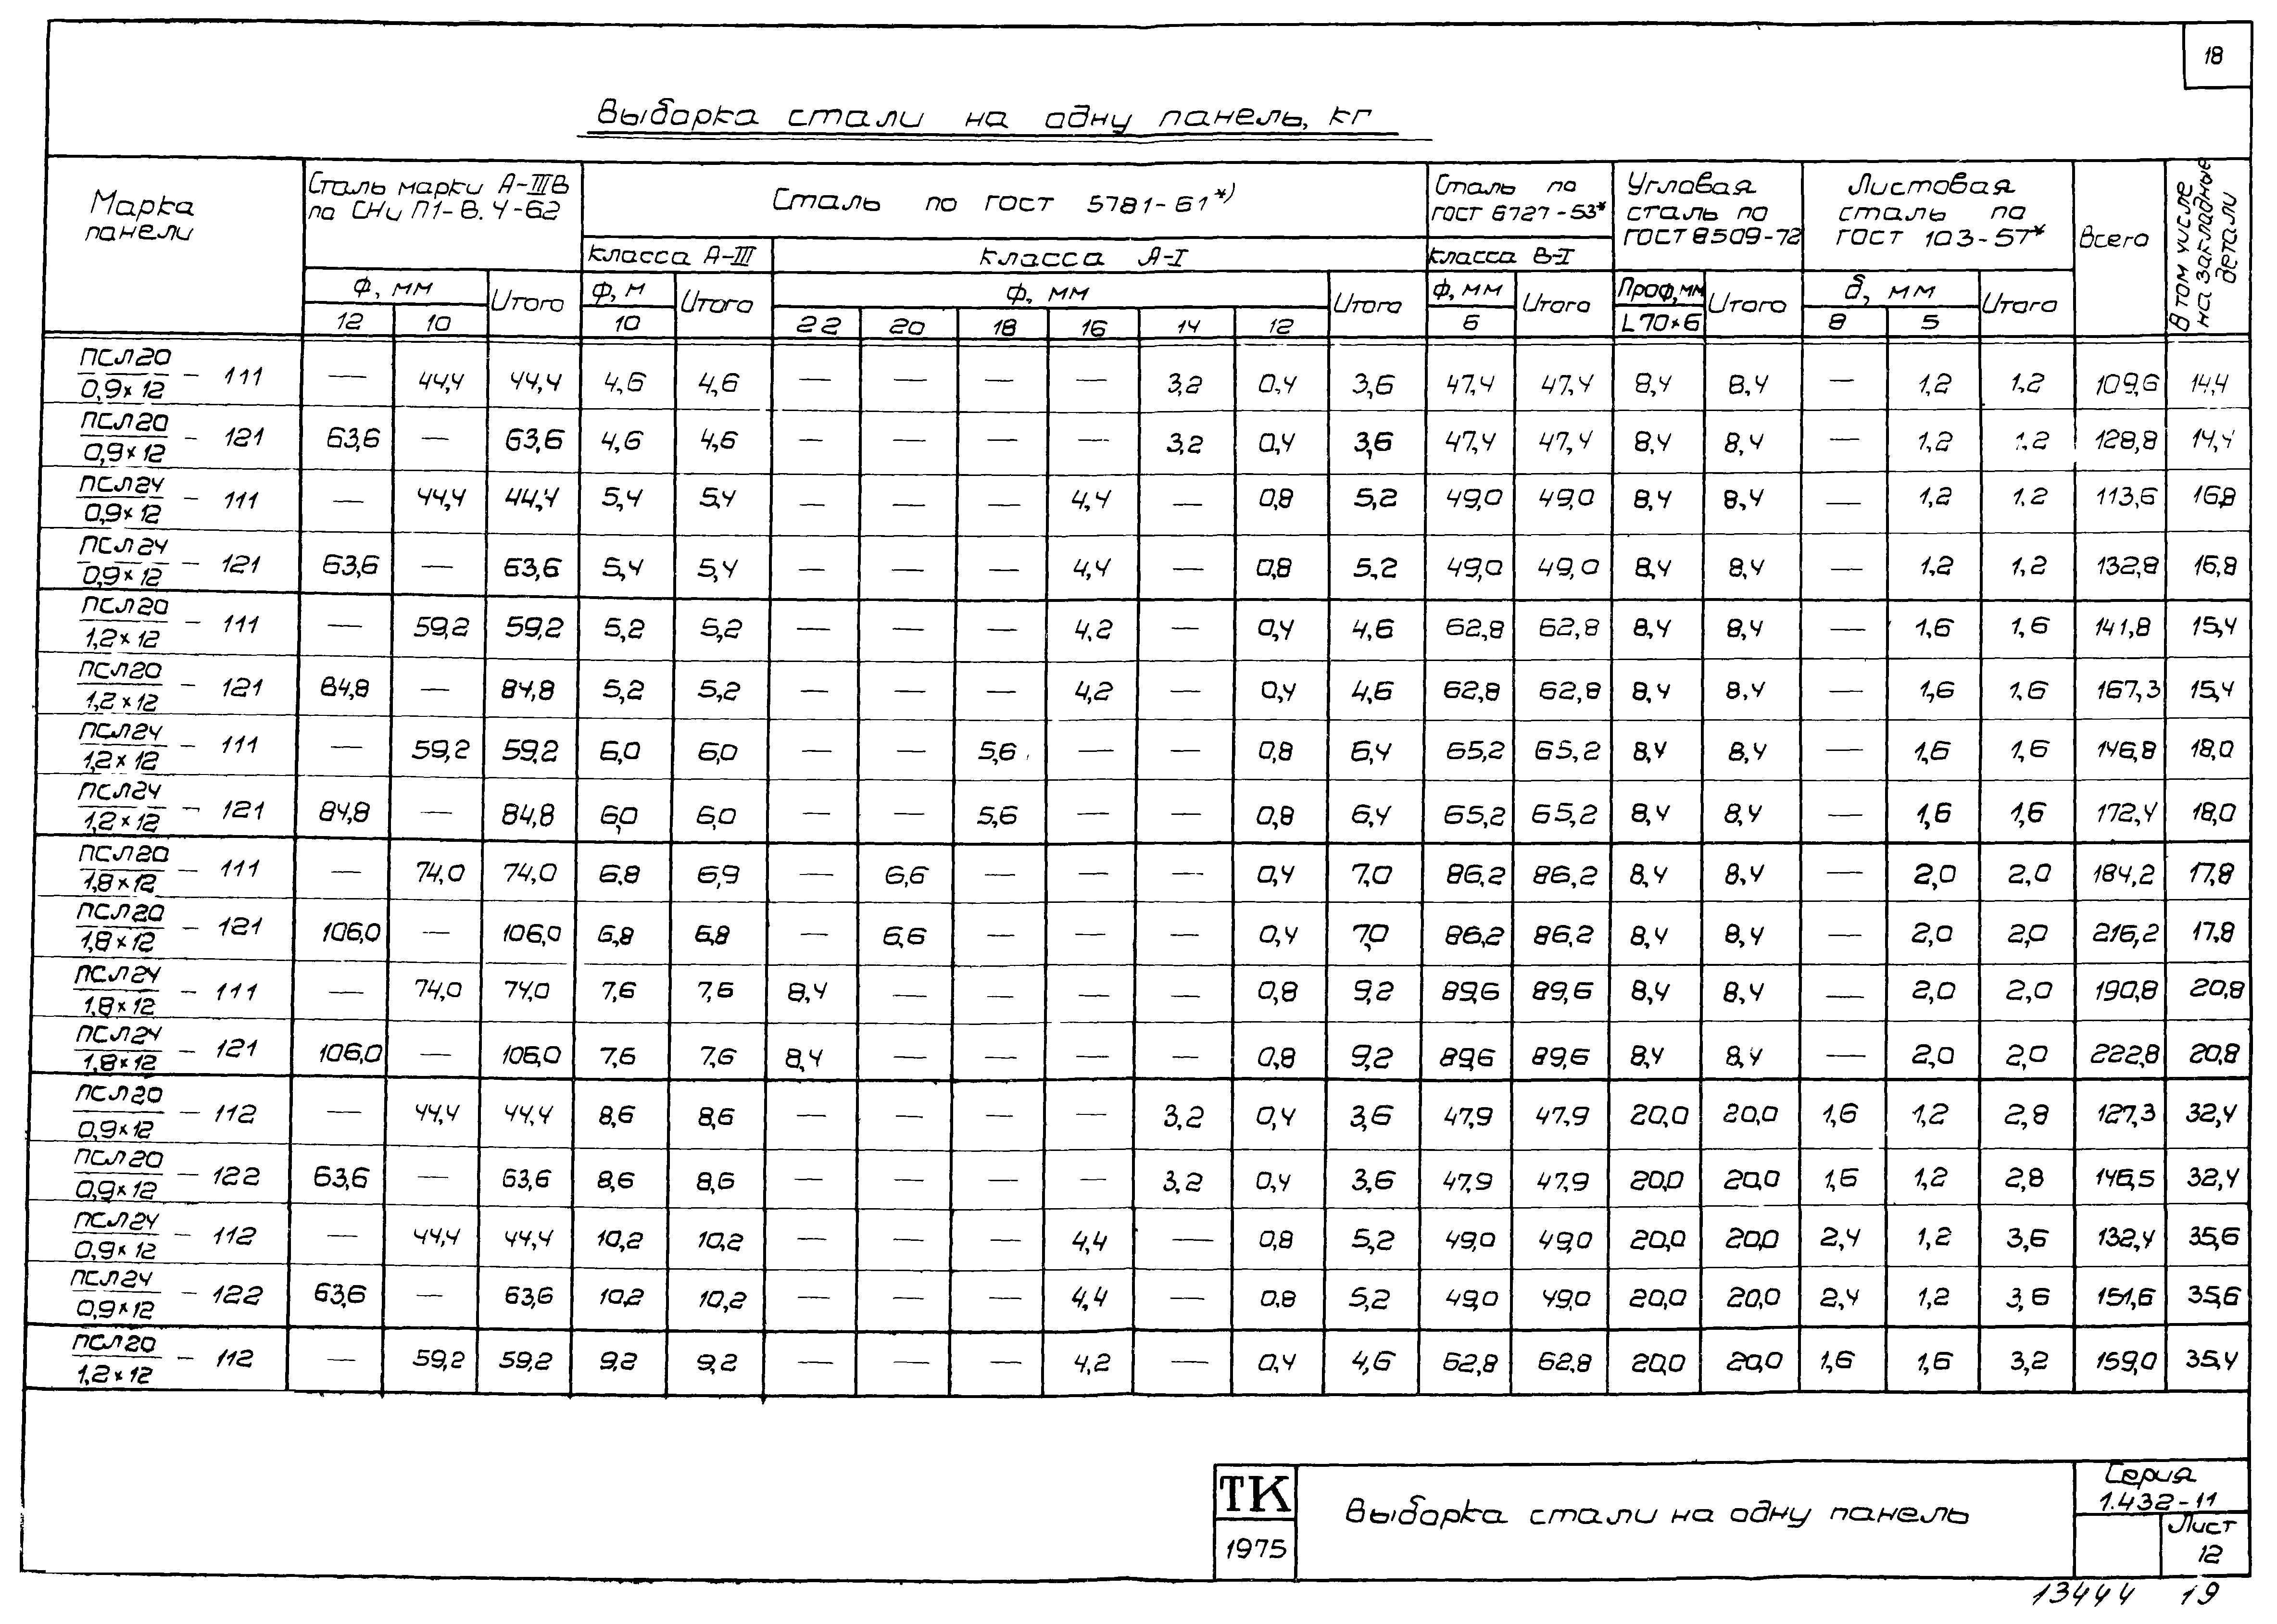 18
Выборка стали на одну панель, кг
Марка панели | Сталь марки А-IIIВ по СНиП I-В.4-62 | Сталь по ГОСТ 5781-61*) | Сталь по ГОСТ 6727-53* | Угловая сталь по ГОСТ 8509-72 | Листовая сталь по ГОСТ 103-57* | Всего | В том числе на закладные детали
класса А-III | класса А-I | класса В-I
Ф, мм | Итого | Ф, м | Итого | Ф, мм | Итого | Ф, мм | Итого | Проф, мм | Итого | δ, мм | Итого
12 | 10 | 10 | 22 | 20 | 18 | 16 | 14 | 12 | 6 | L70×6 | 8 | 5
ПСЛ20/0,9×12 - 111 | — | 44,4 | 44,4 | 4,6 | 4,6 | — | — | — | — | 3,2 | 0,4 | 3,6 | 47,4 | 47,4 | 8,4 | 8,4 | — | 1,2 | 1,2 | 109,6 | 14,4
ПСЛ20/0,9×12 - 121 | 63,6 | — | 63,6 | 4,6 | 4,6 | — | — | — | — | 3,2 | 0,4 | 3,6 | 47,4 | 47,4 | 8,4 | 8,4 | — | 1,2 | 1,2 | 128,8 | 14,4
ПСЛ24/0,9×12 - 111 | — | 44,4 | 44,4 | 5,4 | 5,4 | — | — | — | 4,4 | — | 0,8 | 5,2 | 49,0 | 49,0 | 8,4 | 8,4 | — | 1,2 | 1,2 | 113,6 | 16,8
ПСЛ24/0,9×12 - 121 | 63,6 | — | 63,6 | 5,4 | 5,4 | — | — | — | 4,4 | — | 0,8 | 5,2 | 49,0 | 49,0 | 8,4 | 8,4 | — | 1,2 | 1,2 | 132,8 | 16,8
ПСЛ20/1,2×12 - 111 | — | 59,2 | 59,2 | 5,2 | 5,2 | — | — | — | 4,2 | — | 0,4 | 4,6 | 62,8 | 62,8 | 8,4 | 8,4 | — | 1,6 | 1,6 | 141,8 | 15,4
ПСЛ20/1,2×12 - 121 | 84,8 | — | 84,8 | 5,2 | 5,2 | — | — | — | 4,2 | — | 0,4 | 4,6 | 62,8 | 62,8 | 8,4 | 8,4 | — | 1,6 | 1,6 | 167,3 | 15,4
ПСЛ24/1,2×12 - 111 | — | 59,2 | 59,2 | 6,0 | 6,0 | — | — | 5,6 | — | — | 0,8 | 6,4 | 65,2 | 65,2 | 8,4 | 8,4 | — | 1,6 | 1,6 | 146,8 | 18,0
ПСЛ24/1,2×12 - 121 | 84,8 | — | 84,8 | 6,0 | 6,0 | — | — | 5,6 | — | — | 0,8 | 6,4 | 65,2 | 65,2 | 8,4 | 8,4 | — | 1,6 | 1,6 | 172,4 | 18,0
ПСЛ20/1,8×12 - 111 | — | 74,0 | 74,0 | 6,8 | 6,9 | — | 6,6 | — | — | — | 0,4 | 7,0 | 86,2 | 86,2 | 8,4 | 8,4 | — | 2,0 | 2,0 | 184,2 | 17,8
ПСЛ20/1,8×12 - 121 | 106,0 | — | 106,0 | 6,8 | 6,8 | — | 6,6 | — | — | — | 0,4 | 7,0 | 86,2 | 86,2 | 8,4 | 8,4 | — | 2,0 | 2,0 | 216,2 | 17,8
ПСЛ24/1,8×12 - 111 | — | 74,0 | 74,0 | 7,6 | 7,6 | 8,4 | — | — | — | — | 0,8 | 9,2 | 89,6 | 89,6 | 8,4 | 8,4 | — | 2,0 | 2,0 | 190,8 | 20,8
ПСЛ24/1,8×12 - 121 | 106,0 | — | 106,0 | 7,6 | 7,6 | 8,4 | — | — | — | — | 0,8 | 9,2 | 89,6 | 89,6 | 8,4 | 8,4 | — | 2,0 | 2,0 | 222,8 | 20,8
ПСЛ20/0,9×12 - 112 | — | 44,4 | 44,4 | 8,6 | 8,6 | — | — | — | — | 3,2 | 0,4 | 3,6 | 47,9 | 47,9 | 20,0 | 20,0 | 1,6 | 1,2 | 2,8 | 127,3 | 32,4
ПСЛ20/0,9×12 - 122 | 63,6 | — | 63,6 | 8,6 | 8,6 | — | — | — | — | 3,2 | 0,4 | 3,6 | 47,9 | 47,9 | 20,0 | 20,0 | 1,6 | 1,2 | 2,8 | 146,5 | 32,4
ПСЛ24/0,9×12 - 112 | — | 44,4 | 44,4 | 10,2 | 10,2 | — | — | — | 4,4 | — | 0,8 | 5,2 | 49,0 | 49,0 | 20,0 | 20,0 | 2,4 | 1,2 | 3,6 | 132,4 | 35,6
ПСЛ24/0,9×12 - 122 | 63,6 | — | 63,6 | 10,2 | 10,2 | — | — | — | 4,4 | — | 0,8 | 5,2 | 49,0 | 49,0 | 20,0 | 20,0 | 2,4 | 1,2 | 3,6 | 151,6 | 35,6
ПСЛ20/1,2×12 - 112 | — | 59,2 | 59,2 | 9,2 | 9,2 | — | — | — | 4,2 | — | 0,4 | 4,6 | 62,8 | 62,8 | 20,0 | 20,0 | 1,6 | 1,6 | 3,2 | 159,0 | 35,4
ТК
1975
Выборка стали на одну панель
Серия
1.432-11
Лист
12
13444 19